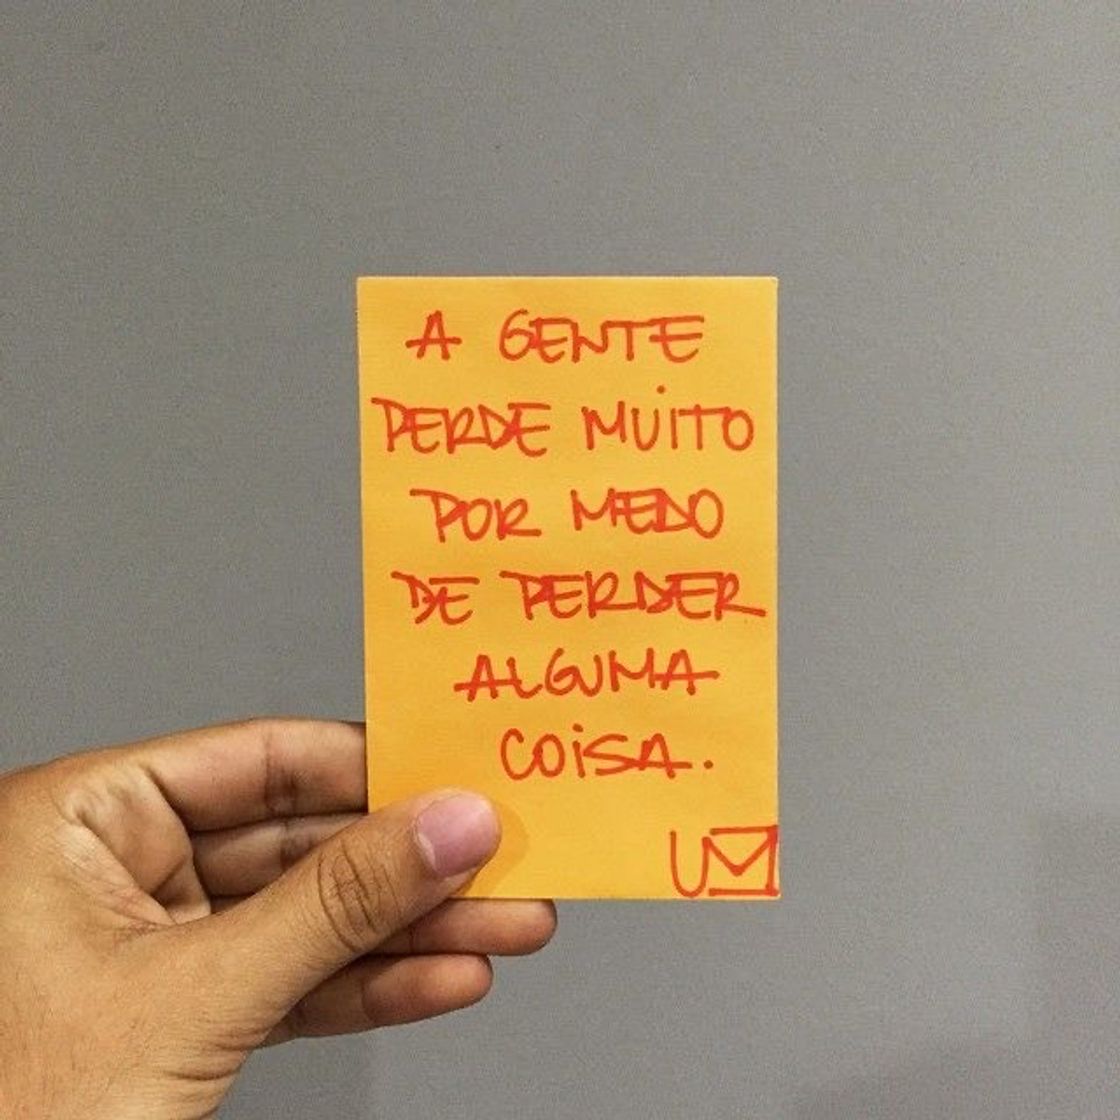 A GENTE
PERDE MUITO
POR MEDO
DE PERDER
ALGUMA
COISA.
UM